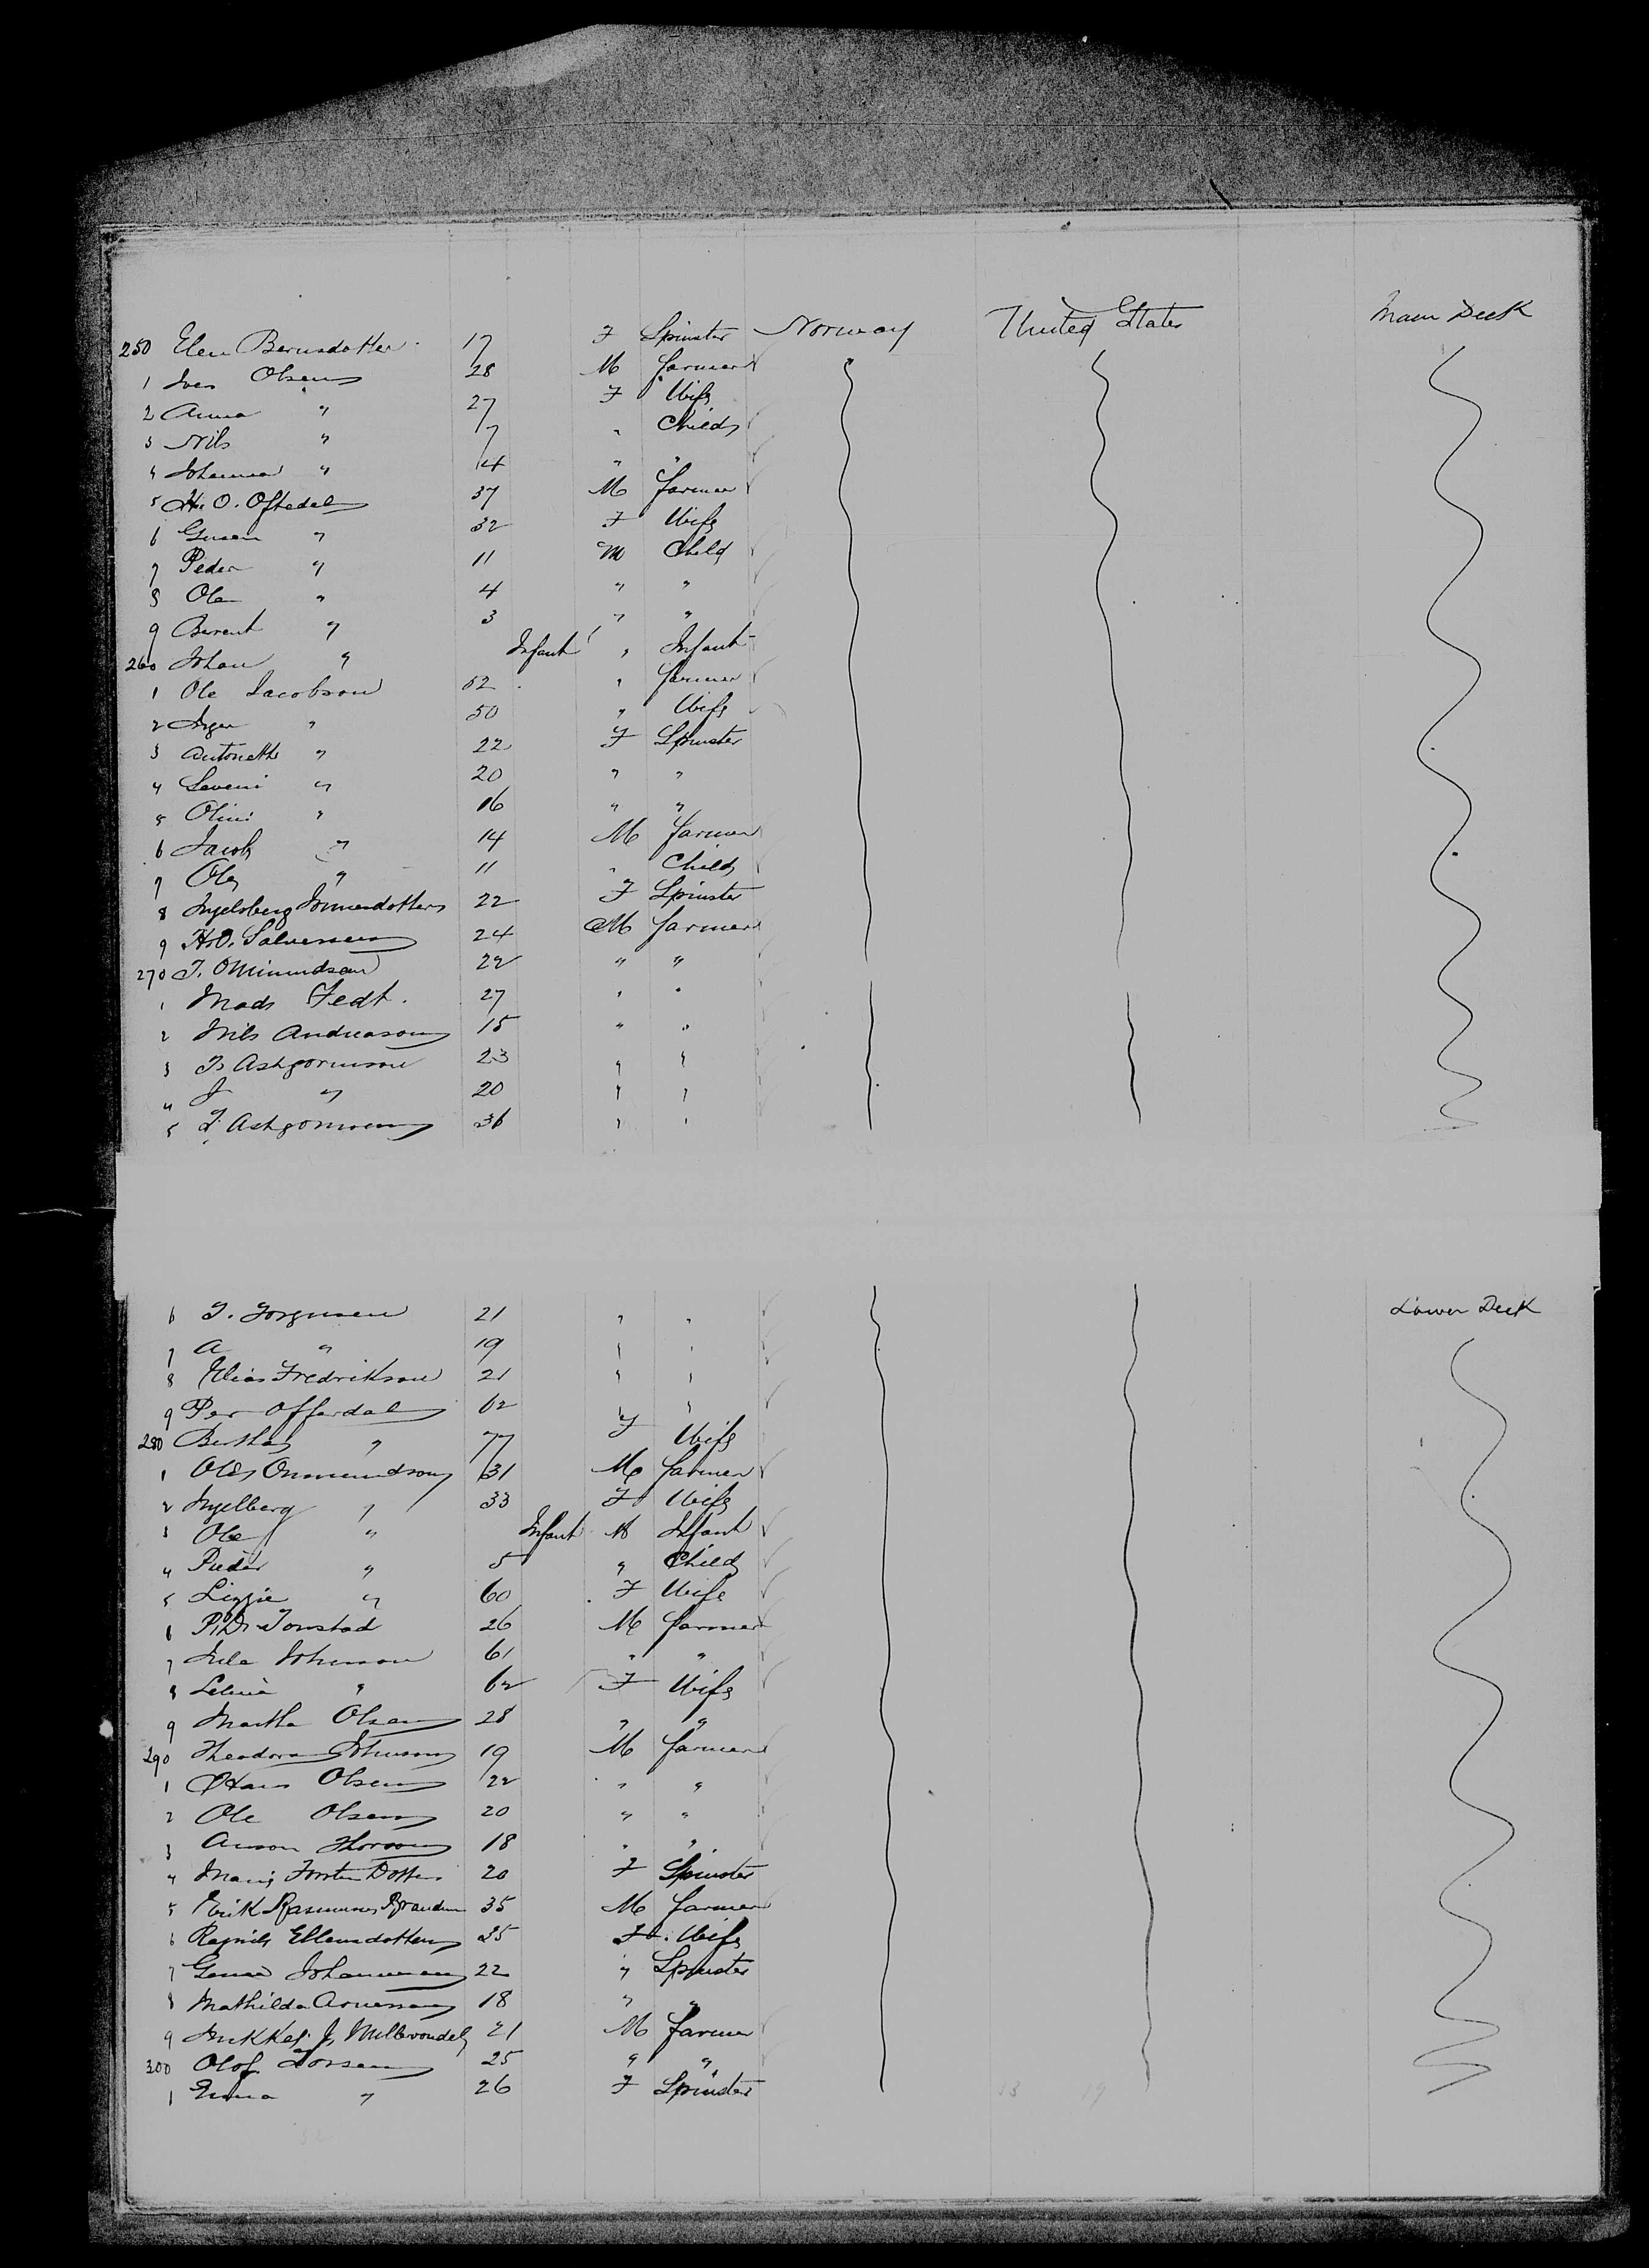 250 Elen Bernsdotter 17 F Spinster Norway United States Main Deck
1 Iver Olsen 28 M farmer
2 Anna " 27 F Wife
3 Nils " 7 " Child
4 Johanna " 4 " "
5 H. O. Oftedal 37 M farmer
6 " 32 F Wife
7 Peder " 11 M Child
8 Ole " 4 " "
9 Berent " 3 " "
260 Johan " Infant " Infant
1 Ole Jacobson 52 " farmer
2 Inger " 50 " Wife
3 Antonette " 22 F Spinster
4 Severin " 20 " "
5 Olini " 16 " "
6 Jacob " 14 M farmer
7 Ole " 11 " Child
8 Ingeloberg 22 F Spinster
9 H.O. Salvesen 24 M farmer
270 T. Omundsen 22 " "
1 Mads Tedt. 27 " "
2 Nils Andreason 15 " "
3 23 " "
4 J " 20 " "
5 36 " "
6 T. Torgusen 21 " " Lower Deck
7 A " 19 " "
8 Elias Fredrikson 21 " "
9 Per Offerdal 62 " "
280 Bertha " 77 F Wife
1 Ole Ommundson 31 M farmer
2 Ingelberg " 33 F Wife
3 Ole " Infant M Infant
4 Peder " 5 " Child
5 Lizzie " 60 F Wife
6 Tonstad 26 M farmer
7 Johnson 61 " "
8 " 62 F Wife
9 Martha Olsen 28 " "
290 Theodore Johnson 19 M farmer
1 Hans Olsen 22 " "
2 Ole Olsen 20 " "
3 18 " "
4 20 F Spinster
5 Erik Rasmus 35 M farmer
6 Ragnild Ellensdotter 35 F Wife
7 Johannesen 22 " Spinster
8 Mathilda Arnesen 18 " "
9 21 M farmer
300 Olof Larsen 25 " "
1 Emma " 26 F Spinster